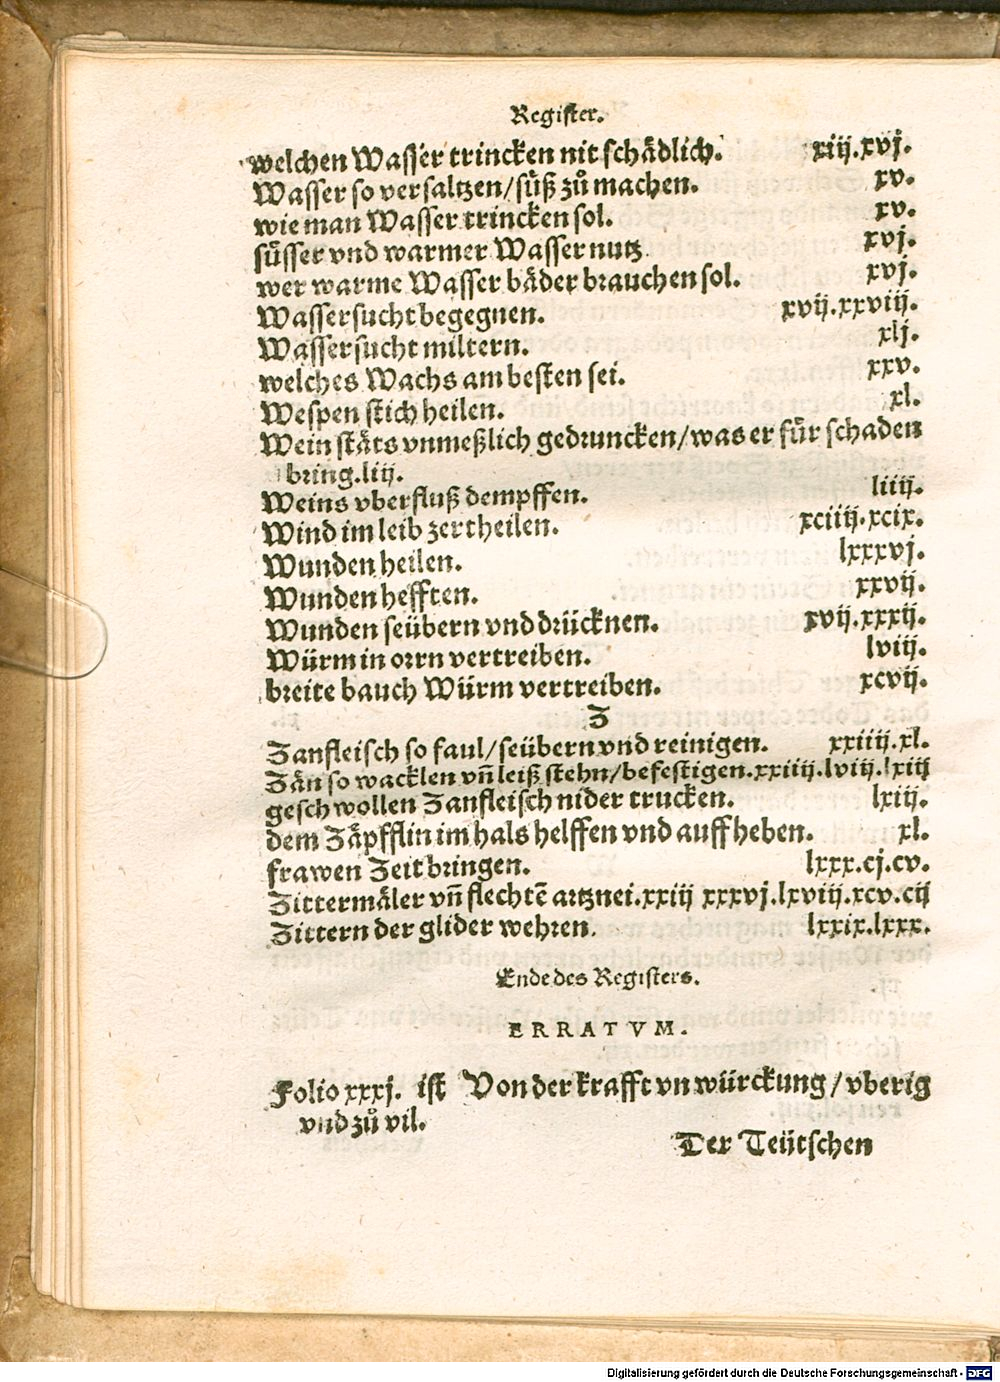 Register.
welchen Wasser trincken nit schädlich. xiij.xvj.
Wasser so versaltzen/süß zů machen. xv.
wie man Wasser trincken sol. xv.
süsser vnd warmer Wasser nutz xvj.
wer warme Wasser bäder brauchen sol. xvj.
Wassersucht begegnen. xvij.xxviij.
Wassersucht miltern. xlj.
welches Wachs am besten sei. xxv.
Wespen stich heilen. xl.
Wein stäts vnmeßlich gedruncken/was er für schaden
bring.liij.
Weins vberfluß dempffen. liiij.
Wind im leib zertheilen. xciiij.xcix.
Wunden heilen. lxxxvj.
Wunden hefften. xxvij.
Wunden seübern vnd drücknen. xvij.xxxij.
Würm in orrn vertreiben. lviij.
breite bauch Würm vertreiben. xcvij.
Z
Zanfleisch so faul/seübern vnd reinigen. xxiiij.xl.
Zän so wacklen vn̄ leiß stehn/befestigen.xxiiij.lviij.lxiij
geschwollen Zanfleisch nider trucken. lxiij.
dem Zäpfflin im hals helffen vnd auff heben. xl.
frawen Zeit bringen. lxxx.cj.cv.
Zittermäler vn̄ flechtē artznei.xxiij xxxvj.lxviij.xcv.cij
Zittern der glider wehren. lxxix.lxxx.
Ende des Registers.
ERRATVM.
Folio xxxj. ist Von der krafft vn würckung/vberig
vnd zů vil.
Der Teütschen
Digitalisierung gefördert durch die Deutsche Forschungsgemeinschaft - DFG